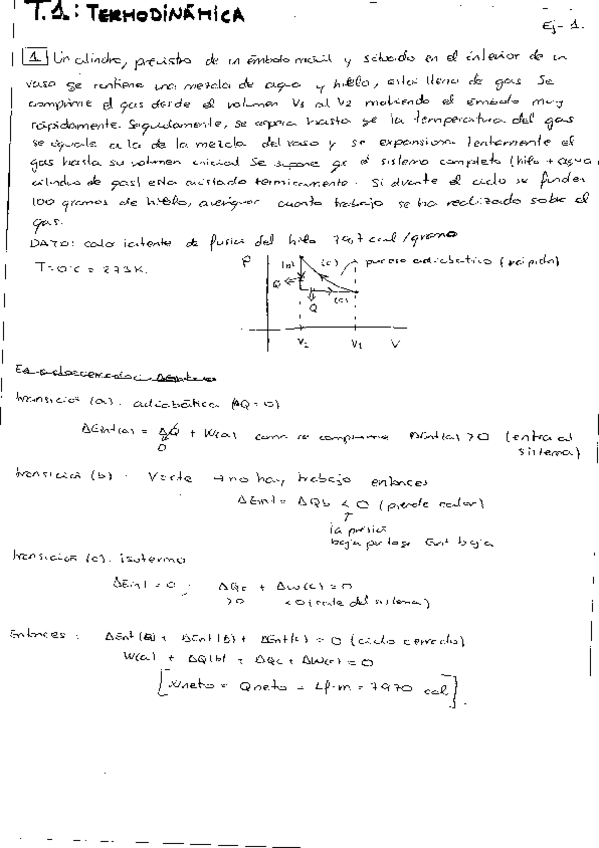 T.1: TERMODINÁMICA
Ej-1.
1 Un cilindro, provisto de un émbolo móvil y situado en el interior de un
vaso qe contiene una mezcla de agua y hielo, está lleno de gas Se
comprime el gas desde el volumen V1 al V2 moviendo el émbolo muy
rápidamente. Seguidamente, se espera hasta qe la temperatura del gas
se iguale a la de la mezcla del vaso y se expansiona lentamente el
gas hasta su volumen inicial Se supone qe el sistema completo (hielo + agua,
cilindro de gas) esta aislado termicamente. Si durante el ciclo se funden
100 gramos de hielo, averiguar cuanto trabajo se ha realizado sobre el
gas.
DATO: calor latente de fusion del hielo 79,7 cal/gramo
T=0ºC = 273K.
P
(b)
(a)
proceso adiabatico (rápido)
Q
(c)
Q
V2
V1
V
transicion (a). adiabática (ΔQ=0)
ΔEint(a) = ΔQ + W(a) como se comprime ΔEint(a) >0 (entra al
0
sistema)
transicion (b). V=cte → no hay trabajo entonces
ΔEint = ΔQb < 0 (pierde calor)
la presión
baja por lo qe Eint baja
transicion (c). isotermo
ΔEint = 0; ΔQc + ΔW(c) = 0
>0 <0 (sale del sistema)
Entonces: ΔEint(a) + ΔEint(b) + ΔEint(c) = 0 (ciclo cerrado)
W(a) + ΔQ(b) + ΔQc + ΔW(c) = 0
[Wneto = Qneto = Lf·m = 7970 cal].